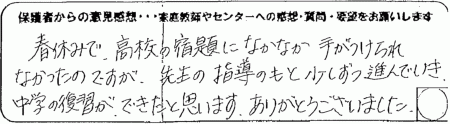 保護者からの意見感想・・・家庭教師やセンターへの感想・質問・要望をお願いします
春休みで、高校の宿題になかなか手がつけられ
なかったのですが、先生の指導のもと少しずつ進んでいき、
中学の復習が、できたと思います。ありがとうございました。